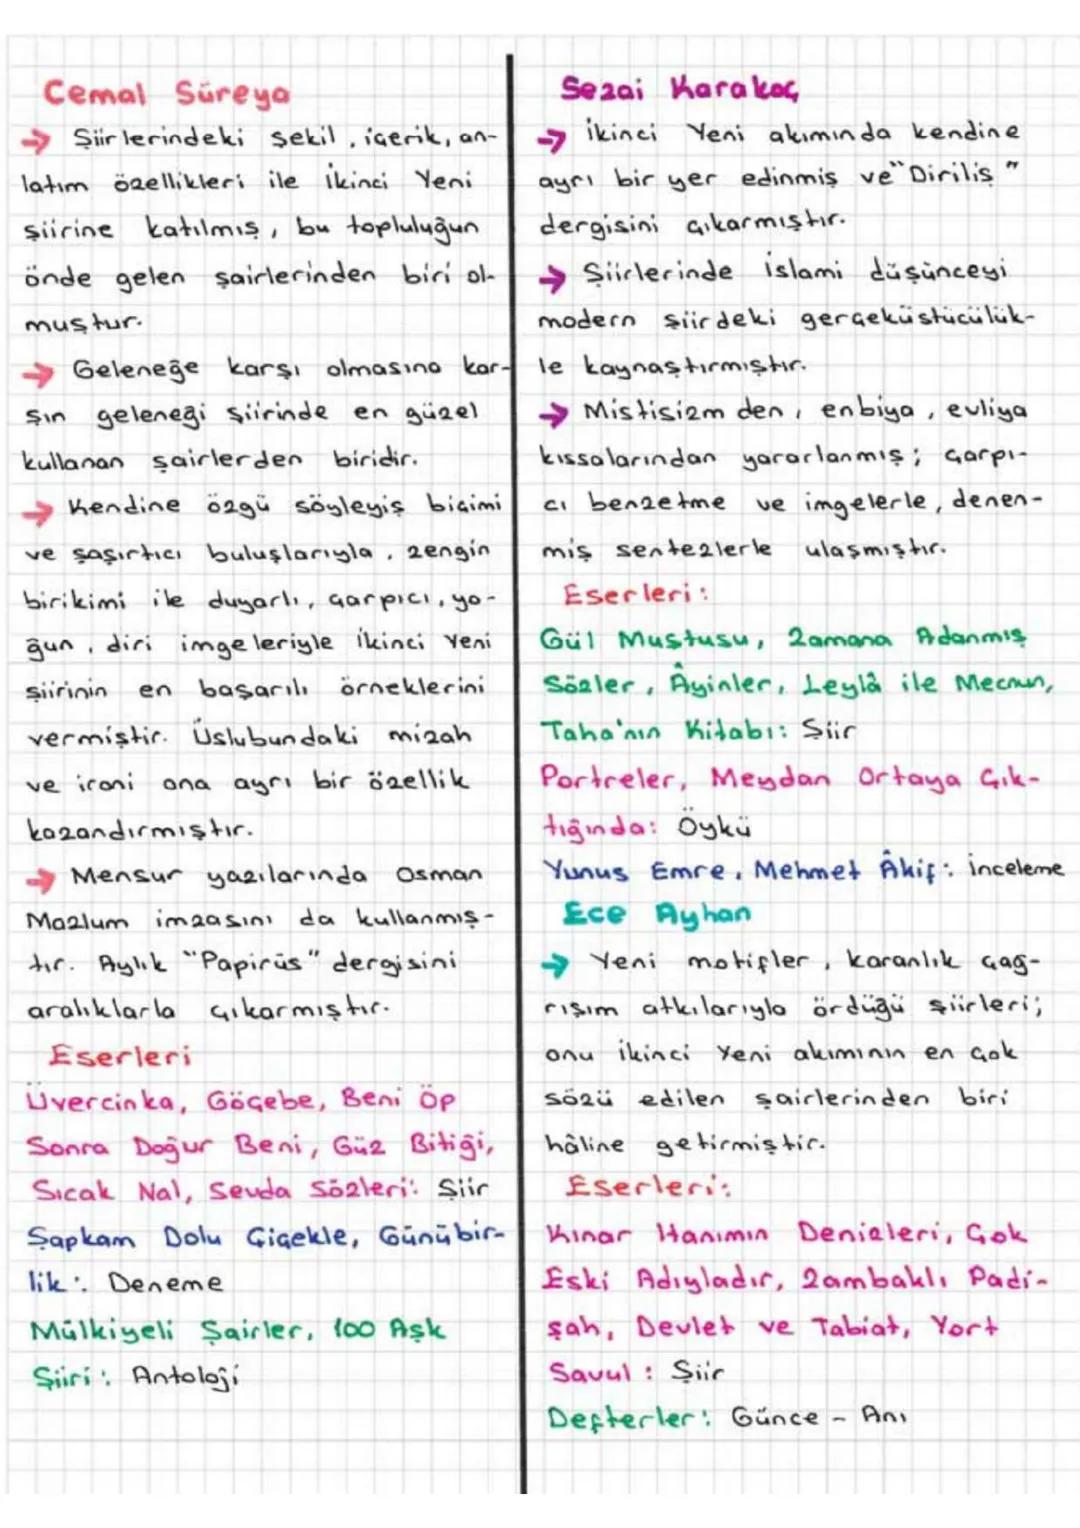 Cemal Süreya
→ Şiirlerindeki şekil, içerik, an-
latım özellikleri ile İkinci Yeni
şiirine katılmış, bu topluluğun
önde gelen şairlerinden biri ol-
muştur.
→ Geleneğe karşı olmasına kar-
şın geleneği şiirinde en güzel
kullanan şairlerden biridir.
→ Kendine özgü söyleyiş biçimi
ve şaşırtıcı buluşlarıyla, zengin
birikimi ile duyarlı, çarpıcı, yo-
ğun, diri imgeleriyle İkinci Yeni
şiirinin en başarılı örneklerini
vermiştir. Üslubundaki mizah
ve ironi ona ayrı bir özellik
kazandırmıştır.
→ Mensur yazılarında Osman
Mazlum imzasını da kullanmış-
tır. Aylık "Papirüs" dergisini
aralıklarla çıkarmıştır.
Eserleri
Üvercinka, Göçebe, Beni Öp
Sonra Doğur Beni, Güz Bitiği,
Sıcak Nal, Sevda Sözleri: Şiir
Şapkam Dolu Çiçekle, Günübir-
lik: Deneme
Mülkiyeli Şairler, 100 Aşk
Şiiri: Antoloji
Sezai Karakoç
→ İkinci Yeni akımında kendine
ayrı bir yer edinmiş ve "Diriliş"
dergisini çıkarmıştır.
→ Şiirlerinde İslami düşünceyi
modern şiirdeki gerçeküstücülük-
le kaynaştırmıştır.
→ Mistisizmden, enbiya, evliya
kıssalarından yararlanmış; çarpı-
cı benzetme ve imgelerle, denen-
miş sentezlerle ulaşmıştır.
Eserleri:
Gül Muştusu, Zamana Adanmış
Sözler, Âyinler, Leylâ ile Mecnun,
Taha'nın Kitabı: Şiir
Portreler, Meydan Ortaya Çık-
tığında: Öykü
Yunus Emre, Mehmet Âkif: İnceleme
Ece Ayhan
→ Yeni motifler, karanlık çağ-
rışım atkılarıyla ördüğü şiirleri;
onu İkinci Yeni akımının en çok
sözü edilen şairlerinden biri
hâline getirmiştir.
Eserleri:
Kınar Hanımın Denizleri, Çok
Eski Adıyladır, Zambaklı Padi-
şah, Devlet ve Tabiat, Yort
Savul: Şiir
Defterler: Günce - Anı